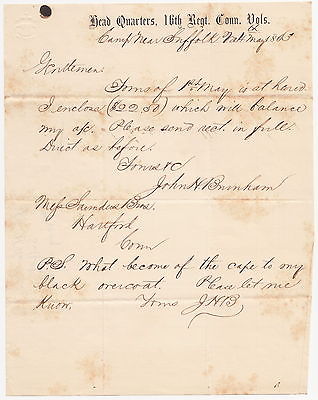 Head Quarters, 16th Regt. Conn. Vols.
Camp Near Suffolk Va May 1863
Gentlemen.
Yours of 1st May is at hand
I enclose ($22,50) which will balance
my a/c. Please send rect. in full.
Direct as before.
Yours &c
John H Burnham
Mess Saunders Bros.
Hartford,
Conn
P.S. What become of the cape to my
black overcoat. Please let me
Know. Yours J.H.B